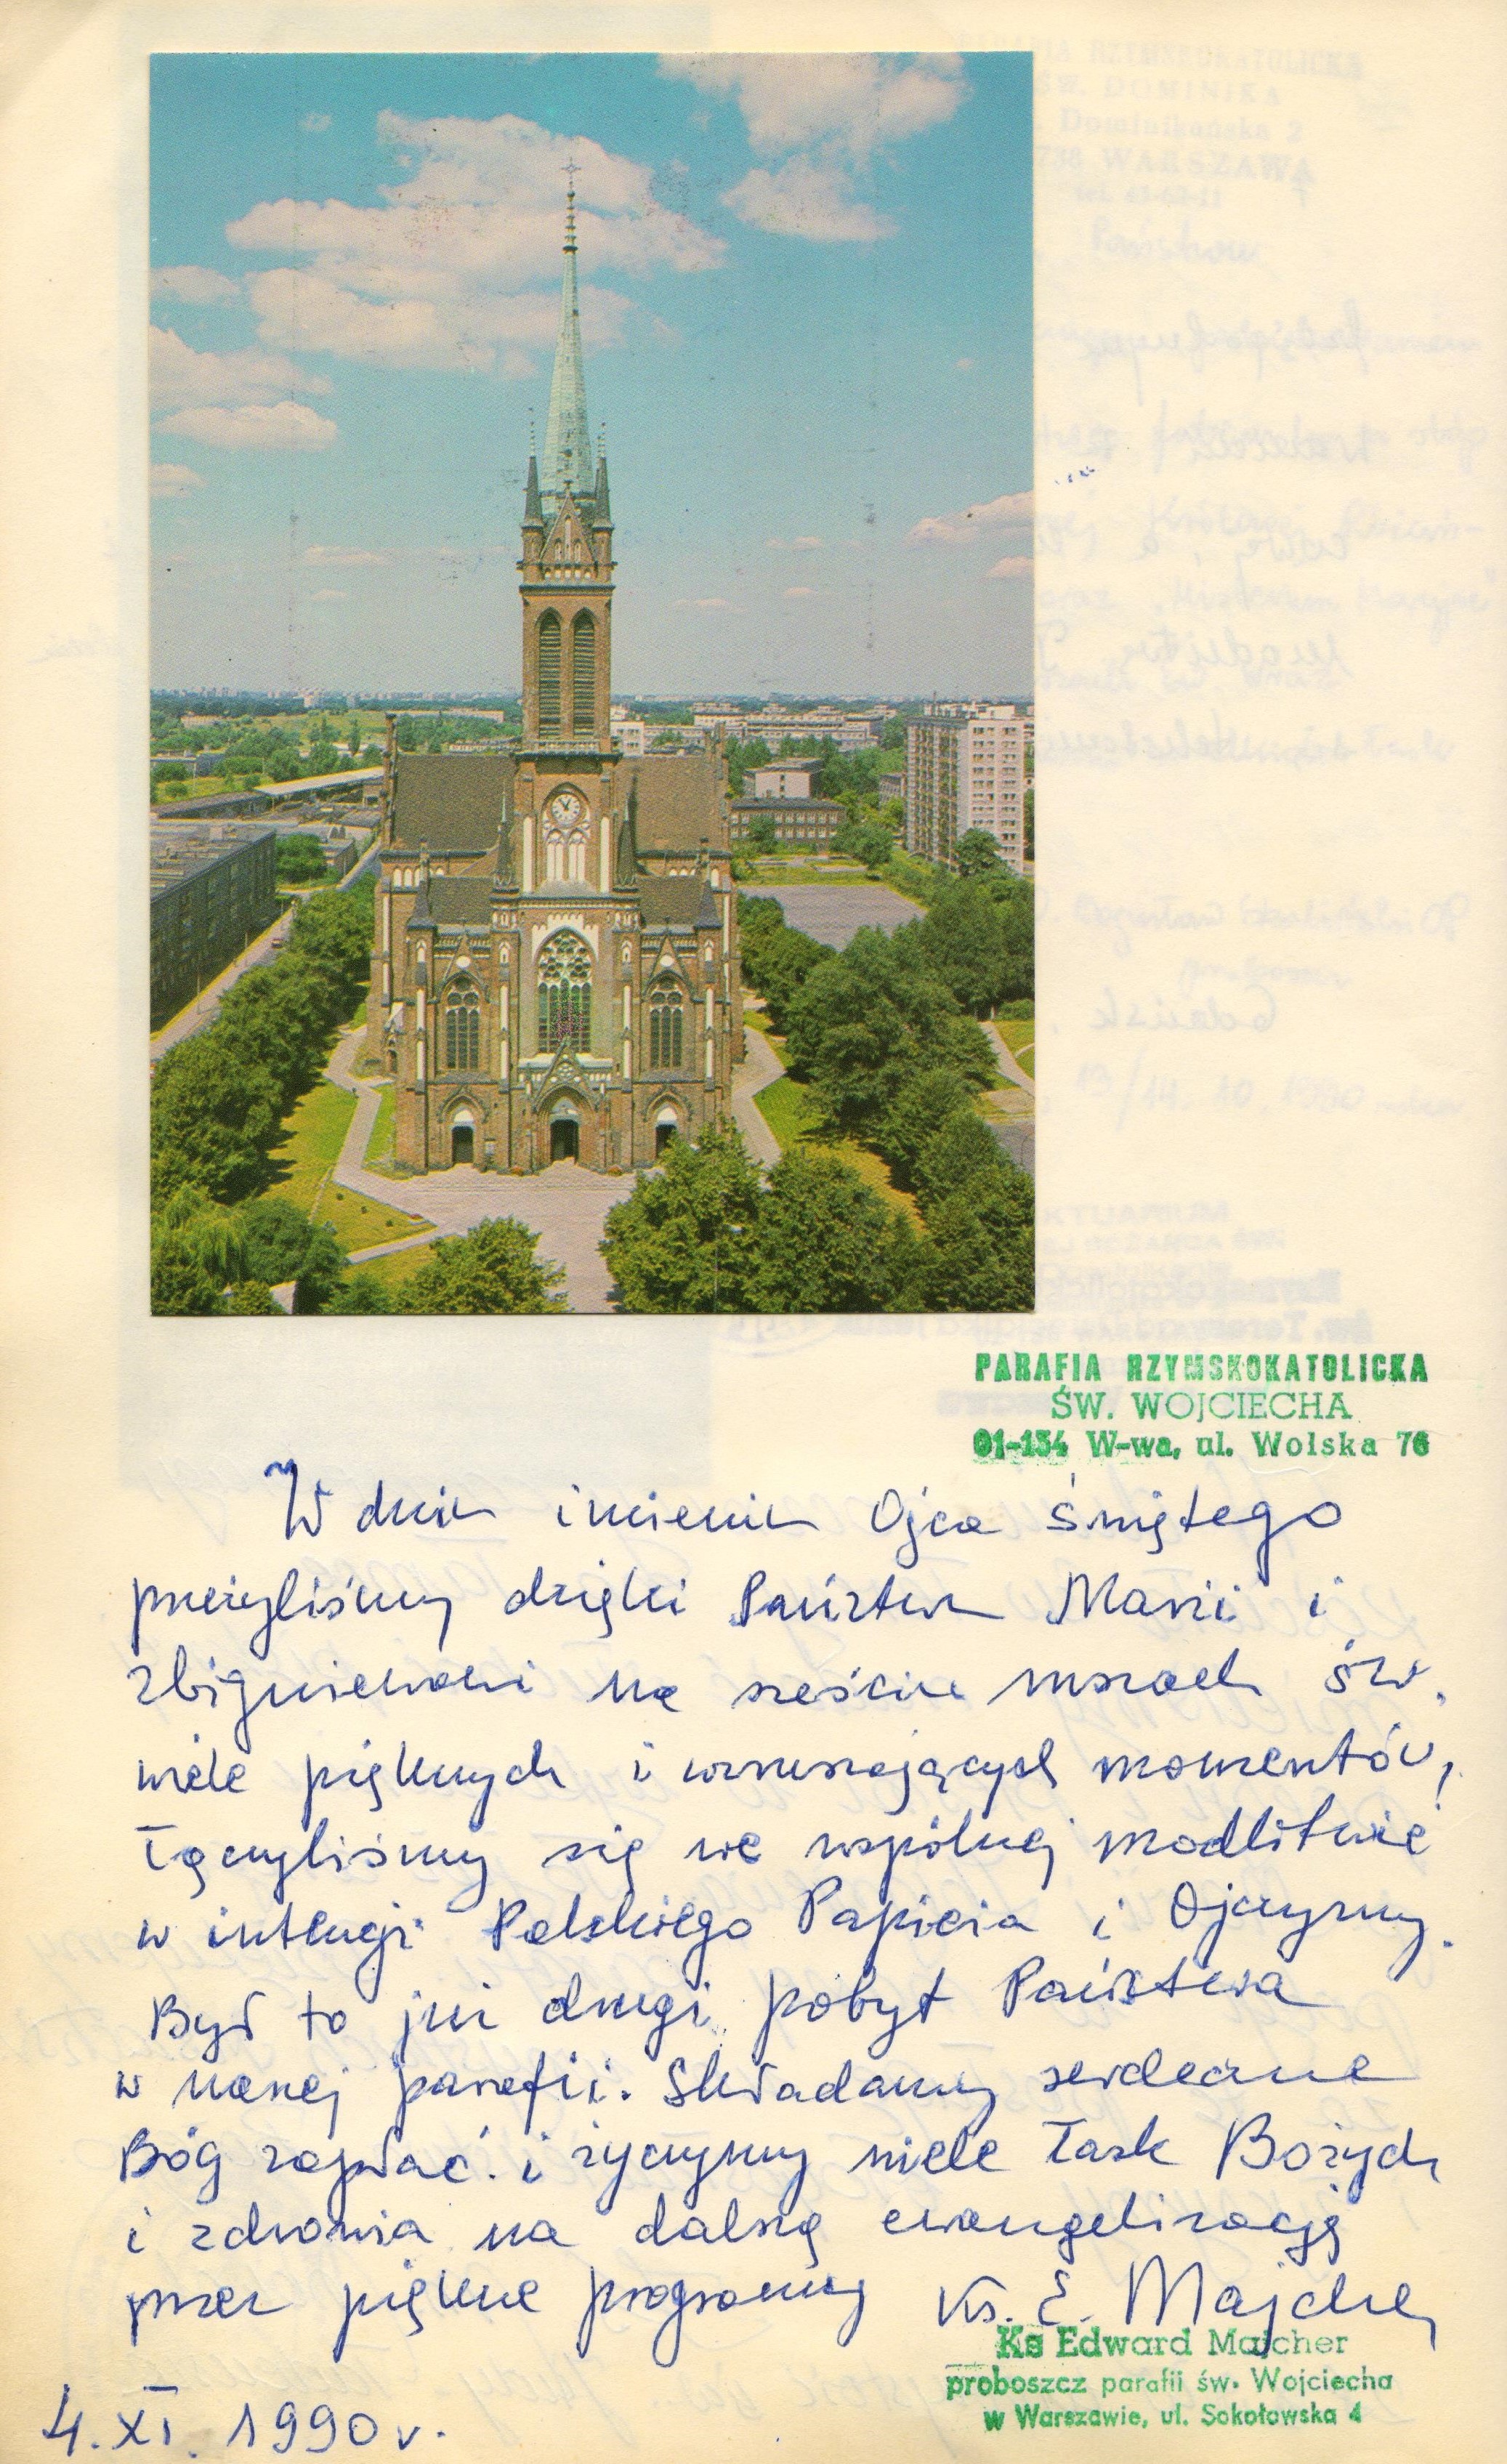 PARAFIA RZYMSKOKATOLICKA
ŚW. WOJCIECHA
01-134 W-wa, ul. Wolska 76
W dniu imienin Ojca świętego
przeżyliśmy dzięki Państwu Marii i
Zbigniewowi na sześciu mszach św.
wiele pięknych i wzruszających momentów,
łączyliśmy się we wspólnej modlitwie
w intencji Polskiego Papieża i Ojczyzny.
Był to już drugi pobyt Państwa
w naszej parafii. Składamy serdeczne
Bóg zapłać. i życzymy wiele łask Bożych
i zdrowia na dalszą ewangelizację
przez piękne programy Ks. E. Majcher
Ks Edward Majcher
proboszcz parafii św. Wojciecha
w Warszawie, ul. Sokołowska 4
4. XI. 1990 r.